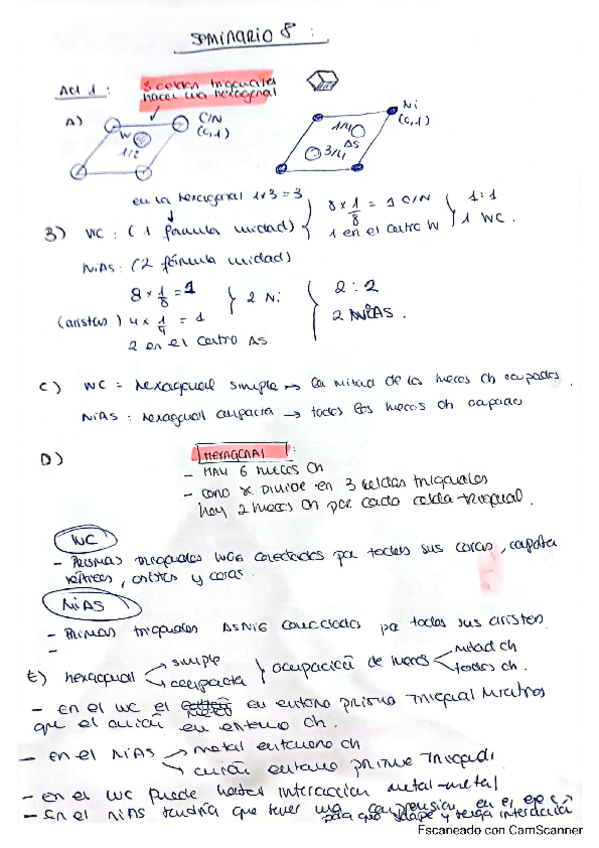 Seminario 8 :
Act 1 :
3 celdas trigonales
hacen una hexagonal
A)
W
1/2
C/N
(0,1)
Ni
(0,1)
1/4
As
3/4
en la hexagonal 1x3 = 3
B) WC : ( 1 fórmula unidad)
8 x 1/8 = 1 C/N
1 en el centro W
1:1
1 WC .
NiAs : (2 fórmula unidad)
8 x 1/8 = 1
(aristas) 4 x 1/4 = 1
2 Ni
2 en el centro As
2 : 2
2 NiAs .
C) WC = hexagonal simple → la mitad de los huecos Oh ocupados .
NiAs : hexagonal compacta → todos los huecos Oh ocupados
D)
HEXAGONAL :
- Hay 6 huecos Oh
- como se divide en 3 celdas trigonales
hay 2 huecos Oh por cada celda trigonal .
WC
- Prismas trigonales WC6 conectados por todas sus caras , comparten
vértices , aristas y caras .
NiAs
- Prismas trigonales AsNi6 conectados por todas sus aristas .
-
E) hexagonal
simple
compacta
ocupación de huecos
mitad Oh
todos Oh .
- en el WC el metal en entorno prisma trigonal mientras
que el anión en entorno Oh .
- en el NiAs
metal entorno Oh
anión entorno prisma trigonal
- en el WC puede haber interacción metal-metal
- En el NiAs tendría que tener una compresión en el eje c
para que solape y tenga interacción
Escaneado con CamScanner